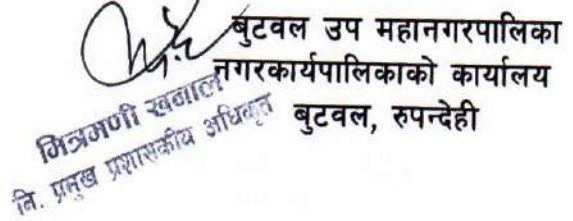 बुटवल उप महानगरपालिका
नगरकार्यपालिकाको कार्यालय
बुटवल, रुपन्देही
मित्रमणी खनाल
नि. प्रमुख प्रशासकीय अधिकृत